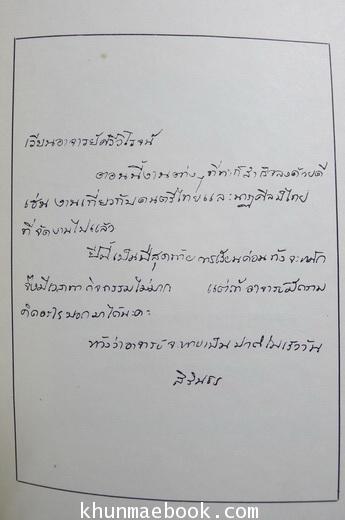 เรียนอาจารย์ศรีวิโรจน์
ตอนนี้งานต่างๆที่ทำก็สำเร็จลงด้วยดี
เช่น งานเกี่ยวกับดนตรีไทยและนาฏศิลป์ไทย
ที่จัดงานไปแล้ว
ปีนี้เป็นปีสุดท้าย การเรียนค่อนข้างจะหนัก
จึงมีเวลาทำกิจกรรมไม่มาก แต่ถ้าอาจารย์มีความ
คิดอะไร บอกมาได้นะคะ
หวังว่าอาจารย์จะหายเป็นปกติในเร็ววัน
สิรินธร
khunmaebook.com